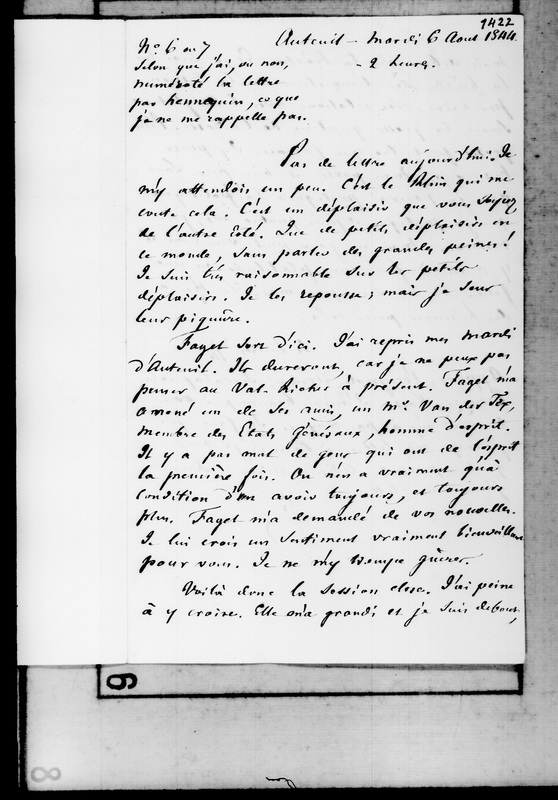 1422
Auteuil – mardi 6 Aout 1844.
– 2 heures.
No 6 ou 7
selon que j'ai, ou non,
numéroté la lettre
par hennequin, ce que
je ne me rappelle pas.
Pas de lettre aujourd'hui. Je
m'y attendois un peu. C'est le qui me
coute cela. C'est un déplaisir que vous
de l'autre côté. Que de petits déplaisirs en
ce monde, sans parler des grandes peines !
Je suis très raisonnable sur les petits
déplaisirs. Je les repousse ; mais je sens
leur piquure.
Faget sort d'ici. J'ai repris mes mardi
d'Auteuil. Ils dureront, car je ne peux pas
penser au Val-Richer à présent. Faget m'a
amené un de ses amis, un Mr Van der
membre des Etats généraux, homme d'esprit.
Il y a pas mal de gens qui ont de l'esprit
la première fois. On n'en a vraiment qu'à
condition d'en avoir toujours, et toujours
plus. Faget m'a demandé de vos nouvelles.
Je lui crois un sentiment vraiment bienveillant
pour vous. Je ne m'y trompe guères.
Voilà donc la session close. J'ai peine
à y croire. Elle m'a grandi et je suis debout,
6
8